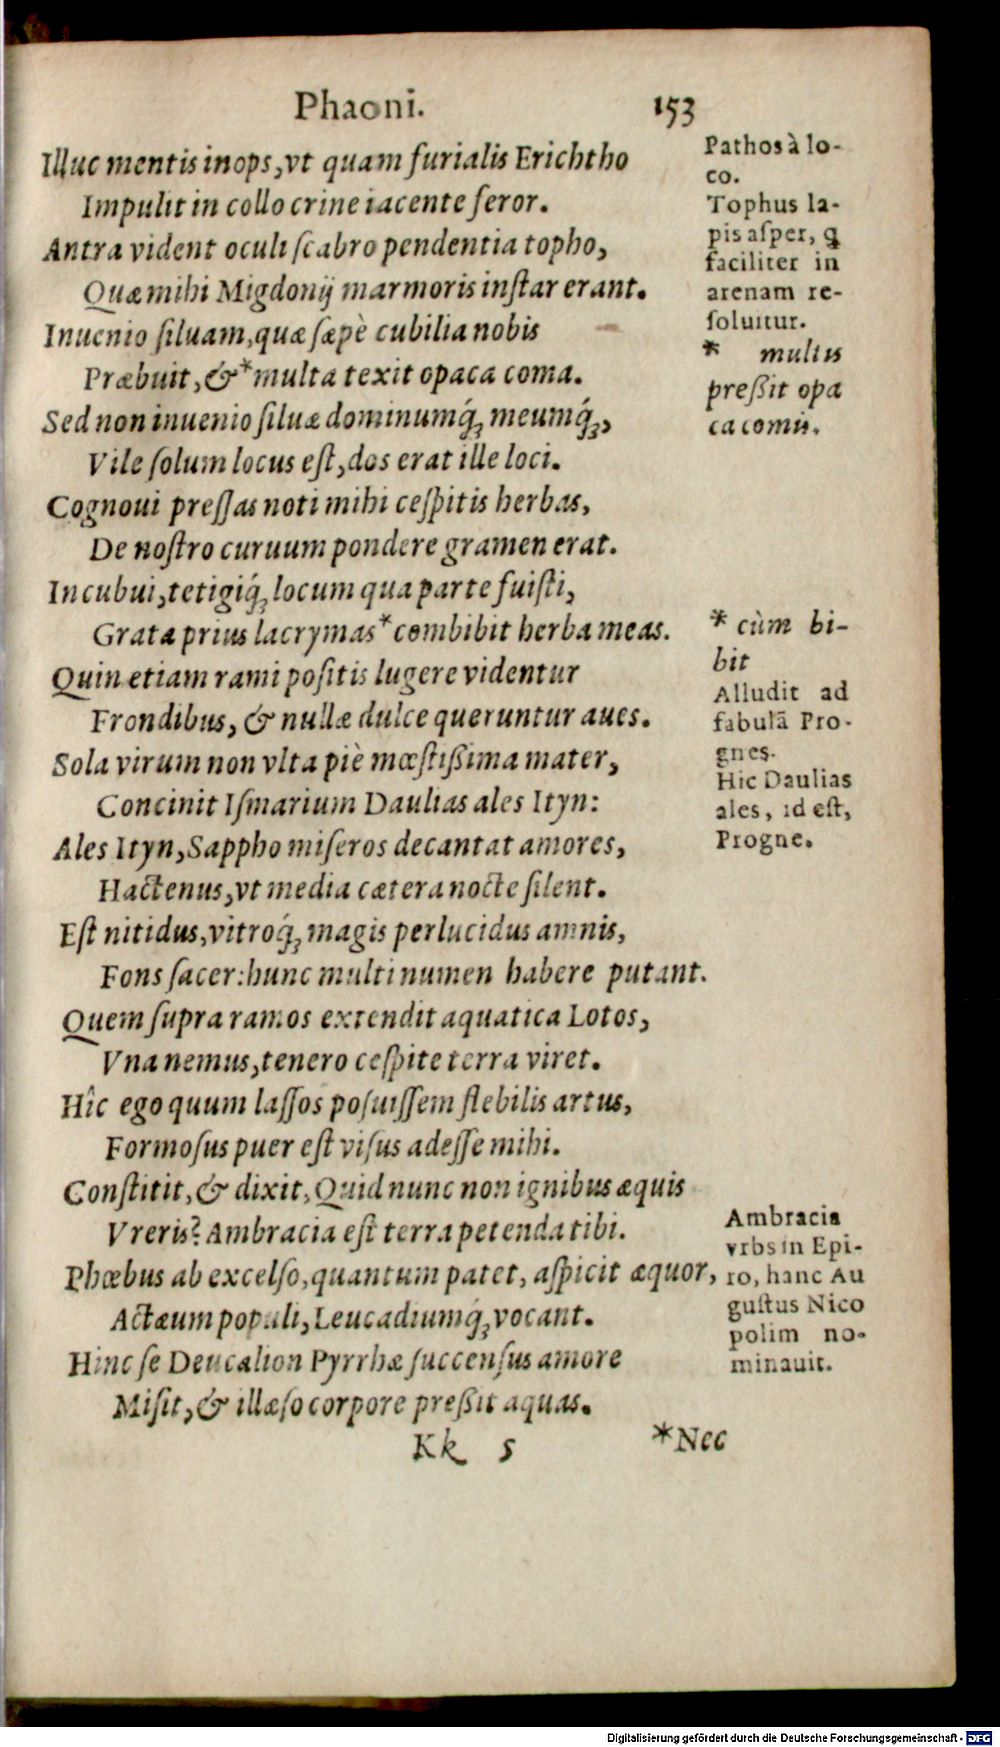 Phaoni. 153
Illuc mentis inops, vt quam furialis Erichtho
Impulit in collo crine iacente feror.
Antra vident oculi ſcabro pendentia topho,
Quæ mihi Migdonij marmoris inſtar erant.
Inuenio ſiluam, quæ ſæpè cubilia nobis
Præbuit, & *multa texit opaca coma.
Sed non inuenio ſiluæ dominumq́ꝫ meumq́ꝫ,
Vile ſolum locus eſt, dos erat ille loci.
Cognoui preſſas noti mihi ceſpitis herbas,
De noſtro curuum pondere gramen erat.
Incubui, tetigiq́ꝫ locum qua parte fuiſti,
Grata prius lacrymas *combibit herba meas.
Quin etiam rami poſitis lugere videntur
Frondibus, & nullæ dulce queruntur aues.
Sola virum non vlta piè mœſtißima mater,
Concinit Iſmarium Daulias ales Ityn:
Ales Ityn, Sappho miſeros decantat amores,
Hactenus, vt media cætera nocte ſilent.
Eſt nitidus, vitroq́ꝫ magis perlucidus amnis,
Fons ſacer: hunc multi numen habere putant.
Quem ſupra ramos extendit aquatica Lotos,
Vna nemus, tenero ceſpite terra viret.
Hîc ego quum laſſos poſuiſſem flebilis artus,
Formoſus puer eſt viſus adeſſe mihi.
Conſtitit, & dixit, Quid nunc non ignibus æquis
Vreris? Ambracia eſt terra petenda tibi.
Phœbus ab excelſo, quantum patet, aſpicit æquor,
Actæum populi, Leucadiumq́ꝫ vocant.
Hinc ſe Deucalion Pyrrhæ ſuccenſus amore
Miſit, & illæſo corpore preßit aquas.
Kk 5 *Nec
Pathos à lo-
co.
Tophus la-
pis aſper, ꝗ
faciliter in
arenam re-
ſoluitur.
* multis
preßit opa
ca comis.
* cùm bi-
bit
Alludit ad
fabulã Pro-
gnes.
Hic Daulias
ales, id eſt,
Progne.
Ambracia
vrbs in Epi-
ro, hanc Au
guſtus Nico
polim no-
minauit.
Digitalisierung gefördert durch die Deutsche Forschungsgemeinschaft - DFG